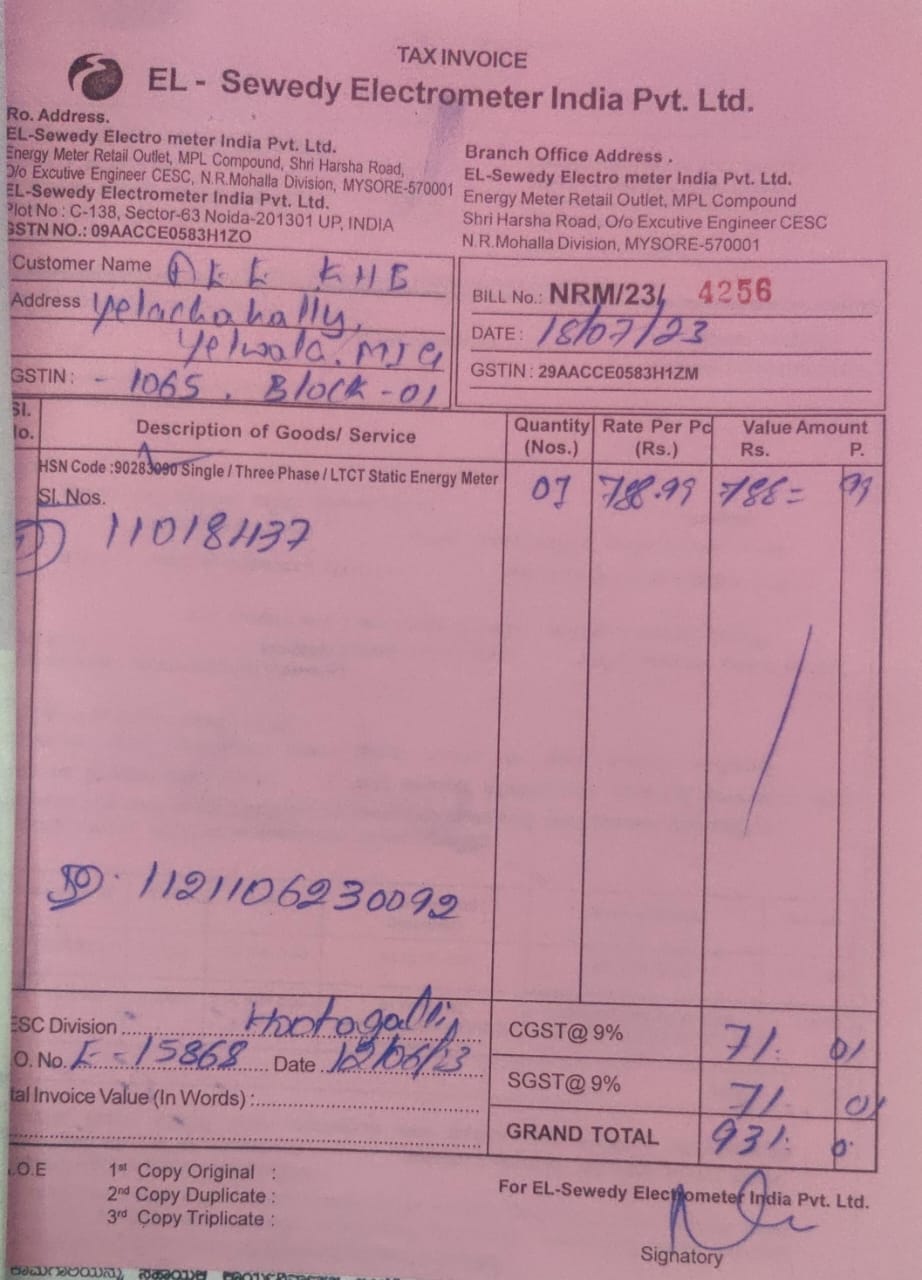 TAX INVOICE
EL - Sewedy Electrometer India Pvt. Ltd.
Ro. Address.
EL-Sewedy Electro meter India Pvt. Ltd.
Energy Meter Retail Outlet, MPL Compound, Shri Harsha Road,
O/o Excutive Engineer CESC, N.R.Mohalla Division, MYSORE-570001
EL-Sewedy Electrometer India Pvt. Ltd.
Plot No : C-138, Sector-63 Noida-201301 UP, INDIA
GSTN NO.: 09AACCE0583H1ZO
Branch Office Address .
EL-Sewedy Electro meter India Pvt. Ltd.
Energy Meter Retail Outlet, MPL Compound
Shri Harsha Road, O/o Excutive Engineer CESC
N.R.Mohalla Division, MYSORE-570001
Customer Name KHB
Address Yelachahally,
Yelwala.
GSTIN : - 1065 . Block -01
BILL No.: NRM/23/ 4256
DATE : 18/07/23
GSTIN : 29AACCE0583H1ZM
Sl. No. Description of Goods/ Service Quantity (Nos.) Rate Per Pc (Rs.) Value Amount Rs. P.
HSN Code :90283090 Single / Three Phase / LTCT Static Energy Meter 01 788.99 788= 99
Sl. Nos.
11211106230092
ESC Division Hootagalli
O. No. E-15868 Date 12/06/23
tal Invoice Value (In Words) :
CGST@ 9% 71. 01
SGST@ 9% 71. 01
GRAND TOTAL 931.
.O.E
1st Copy Original :
2nd Copy Duplicate :
3rd Copy Triplicate :
For EL-Sewedy Electrometer India Pvt. Ltd.
Signatory